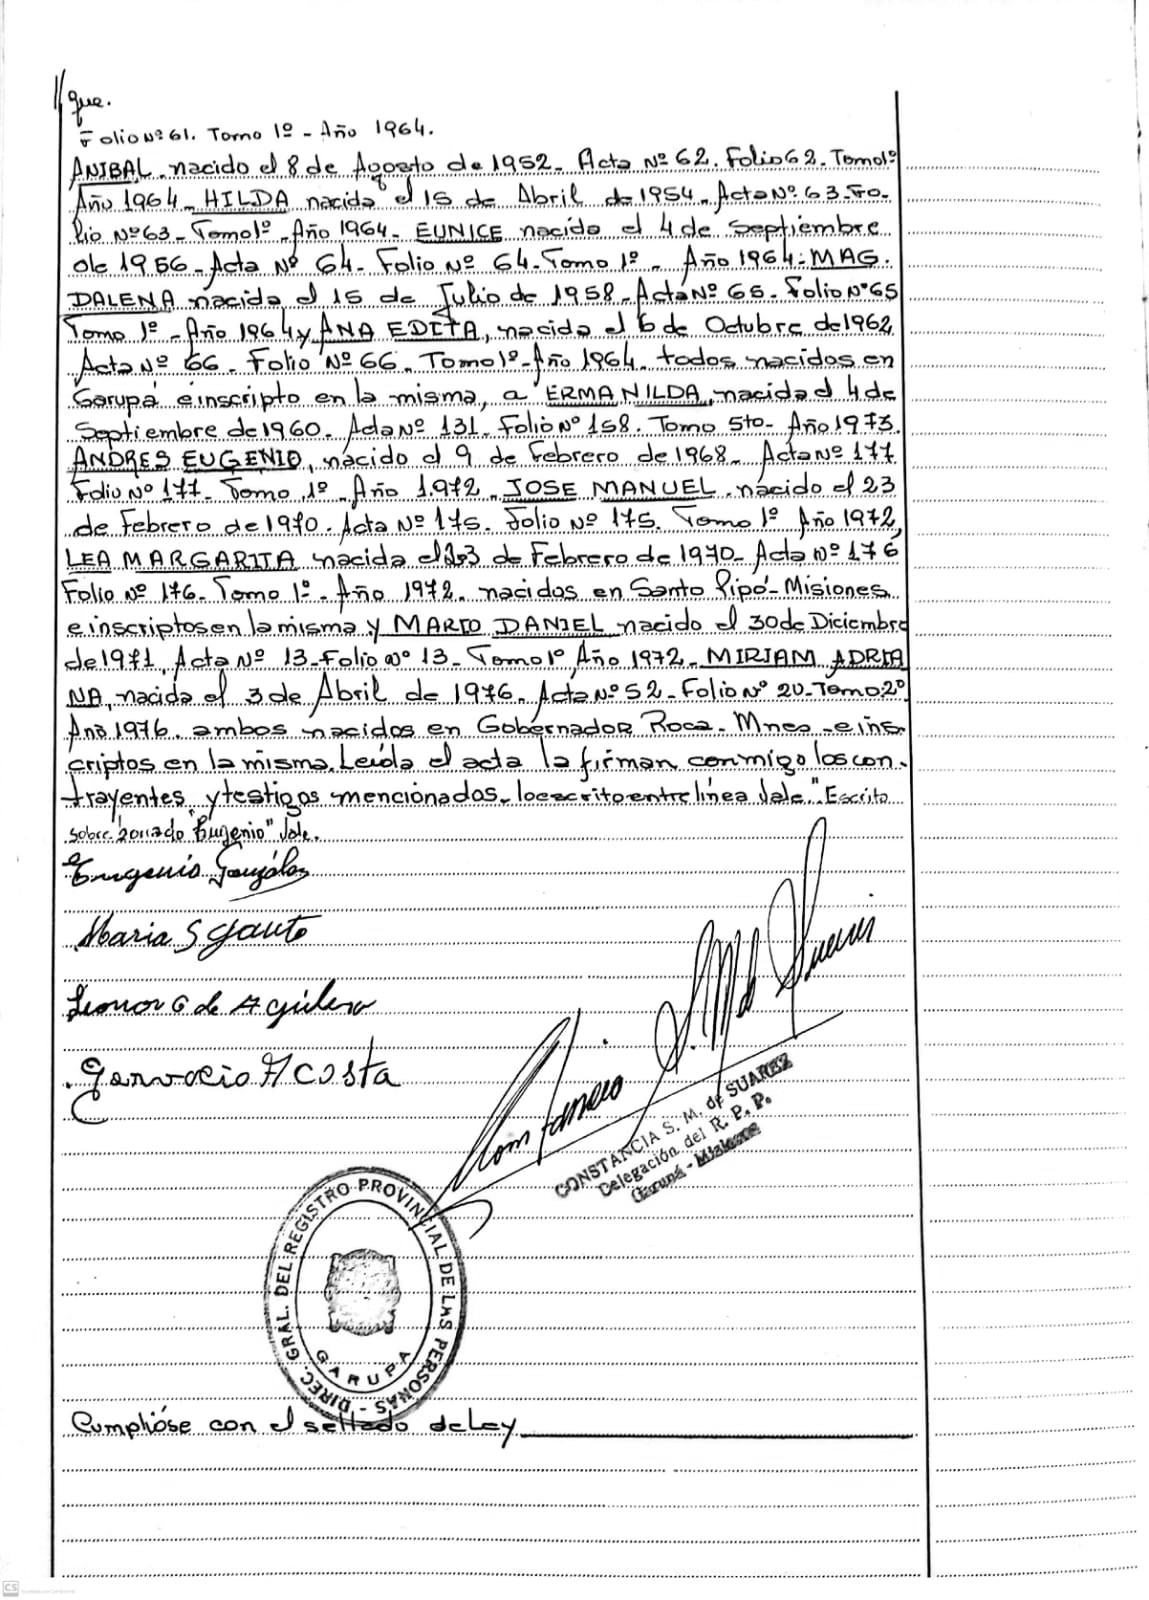 // que.
Folio Nº 61. Tomo 1º - Año 1964.
ANIBAL. nacido el 8 de Agosto de 1952. Acta Nº 62. Folio 62. Tomo 1º
Año 1964. HILDA nacida el 15 de Abril de 1954. Acta Nº 63. Fo.
lio Nº 63 - Tomo 1º - Año 1964. EUNICE nacida el 4 de Septiembre
de 1956 - Acta Nº 64. Folio Nº 64. Tomo 1º - Año 1964. MAG.
DALENA nacida el 15 de Julio de 1958. Acta Nº 65. Folio Nº 65
Tomo 1º - Año 1964 y ANA EDITA, nacida el 6 de Octubre de 1962
Acta Nº 66. Folio Nº 66. Tomo 1º - Año 1964. todos nacidos en
Garupá é inscripto en la misma, a ERMANILDA, nacida el 4 de
Septiembre de 1960. Acta Nº 131. Folio Nº 158. Tomo 5to - Año 1973.
ANDRES EUGENIO, nacido el 9 de Febrero de 1968. Acta Nº 177
Folio Nº 177. Tomo 1º - Año 1.972. JOSE MANUEL. nacido el 23
de Febrero de 1970. Acta Nº 175. Folio Nº 175. Tomo 1º Año 1972,
LEA MARGARITA nacida el 23 de Febrero de 1970 - Acta Nº 176
Folio Nº 176. Tomo 1º - Año 1972. nacidos en Santo Pipó - Misiones
e inscriptos en la misma y MARIO DANIEL nacido el 30 de Diciembre
de 1971, Acta Nº 13 - Folio Nº 13 - Tomo 1º Año 1972 - MIRIAM ADRIA
NA, nacida el 3 de Abril de 1976. Acta Nº 52 - Folio Nº 20 - Tomo 2º
Año 1976. ambos nacidos en Gobernador Roca. Mnes - e ins
criptos en la misma. Leída el acta la firman conmigo los con.
trayentes, y testigos mencionados. lo escrito entre línea Vale." Escrito
sobre borrado "Eugenio" Vale.
Eugenio González
Maria S Gauto
Leonor G de Aguilera
Gervacio Acosta
CONSTANCIA S. M. de SUAREZ
Delegación del R. P. P.
Garupá - Misiones
DIREC. GRAL. DEL REGISTRO PROVINCIAL DE LAS PERSONAS -
GARUPA
Cumplióse con el sellado de Ley
CS